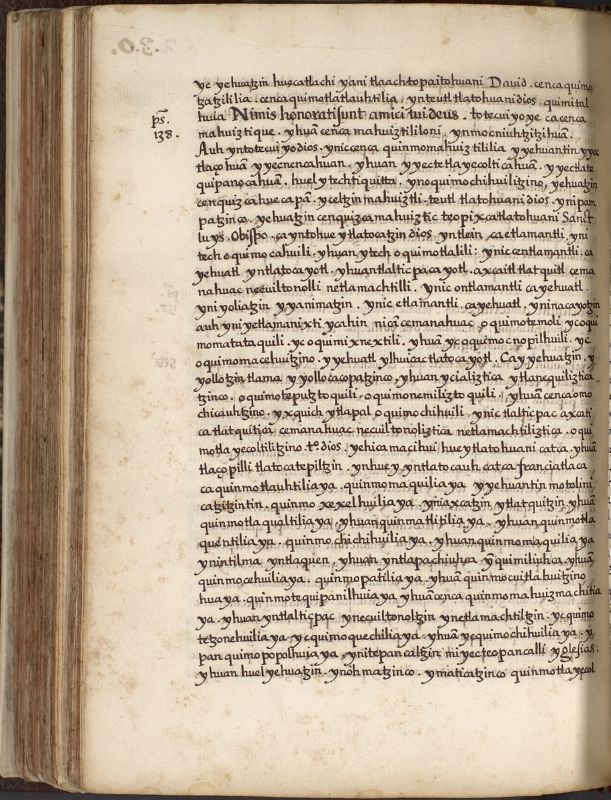 yc yehuatzin huecatlachi yani tlaachtopaitohuani David. cenca quimo
tzatzililia. cenca quimotlatlauhtilia. ynteutl tlatohuani dios. quimital
huia Nimis honorati sunt amici tui deus. totecuiyoye ca cenca
ps. 138.
mahuiztique. yhuā cenca mahuiztililoni. ynmocniuhtzitzihuā.
Auh yntotecuiyo dios. ynic cenca quinmomahuiztililia yyehuantin yyec
tlaçohuā yyecnencahuan. yhuan yyectetlayecolticahuā. yyectlate
quipanocahuā. huel ytechtiquitta. ynoquimochihuilitzino, yehuatzin
cenquizcahuecapā. yceltzin mahuiztli. teutl tlatohuani dios. ynipam
patzinco. yehuatzin cenquizcamahuiztic teopixcatlatohuani Sanct
luys. Obispo. ca yntohue ytlatocatzin dios yntlein, ca etlamantli. yni
tech oquimocahuili. yhuan ytech oquimotlalili. ynic centlamantli. ca
yehuatl yntlatocayotl. yhuan tlalticpacayotl. axcaitl tlatquitl cema
nahuac necuiltonolli netlamachtilli. ynic ontlamantli ca yehuatl.
yni yoliatzin yyanimatzin. ynic etlamantli. ca yehuatl. yninacayotzin
auh yni yetlamanixti ycahin nicā cemanahuac, oquimotemoli yc oqui
momatataquili. yc oquimixnextili. yhuā yc oquimocnopilhuili. yc
oquimomacehuitzino. yyehuatl ylhuicac tlatocayotl. Ca yyehuatzin, y
yollotzin tlama yyollocacopatzinco, yhuan ycializtica ytlanequiliztica
tzinco. oquimotepuztoquili. oquimonemiliztoquili. yhuā cenca omo
chicauhtzino. yxquich ytlapal oquimochihuili. ynic tlalticpac axcati
ca tlatquitica cemanahuac necuiltonoliztica netlamachtiliztica. oqui
motlayecoltilitzino to. dios. yehica macihui huey tlatohuani catca. yhuā
tlaçopilli tlatocatepiltzin. ynhuey. yntlatocauh catca francia tlaca
ca quinmotlauhtiliaya. quinmomaquilia ya yyehuantin motolini
catzitzintin. quinmoxexelhuiliaya. yniaxcatzin ytlatquitzin. yhuā
quinmotlaqualtiliaya. yhuan quinmatlitiliaya. yhuan quinmotla
quentiliaya. quinmochichihuiliaya. yhuan quinmomaquiliaya
ynintilma yntlaquen, yhuan yntlapachiuhca yn quimiliuhca. yhuā
quinmocehuiliaya. quinmopatiliaya. yhuā quinmocuitlahuitzino
huaya. quinmotequipanilhuiaya yhuā cenca quinmomahuizmachitia
ya. yhuan yntlalticpac ynecuiltonoltzin ynetlamachtiltzin. yc quimo
tetzonehuiliaya yc quimoquechiliaya. yhuā yc quimochihuiliaya. y
pan quimopopolhuiaya. ynitepancaltzin miyec teopancalli yglesias.
yhuan huel yehuatzin. ynohmatzinco. ymaticatzinco quinmotlayecol